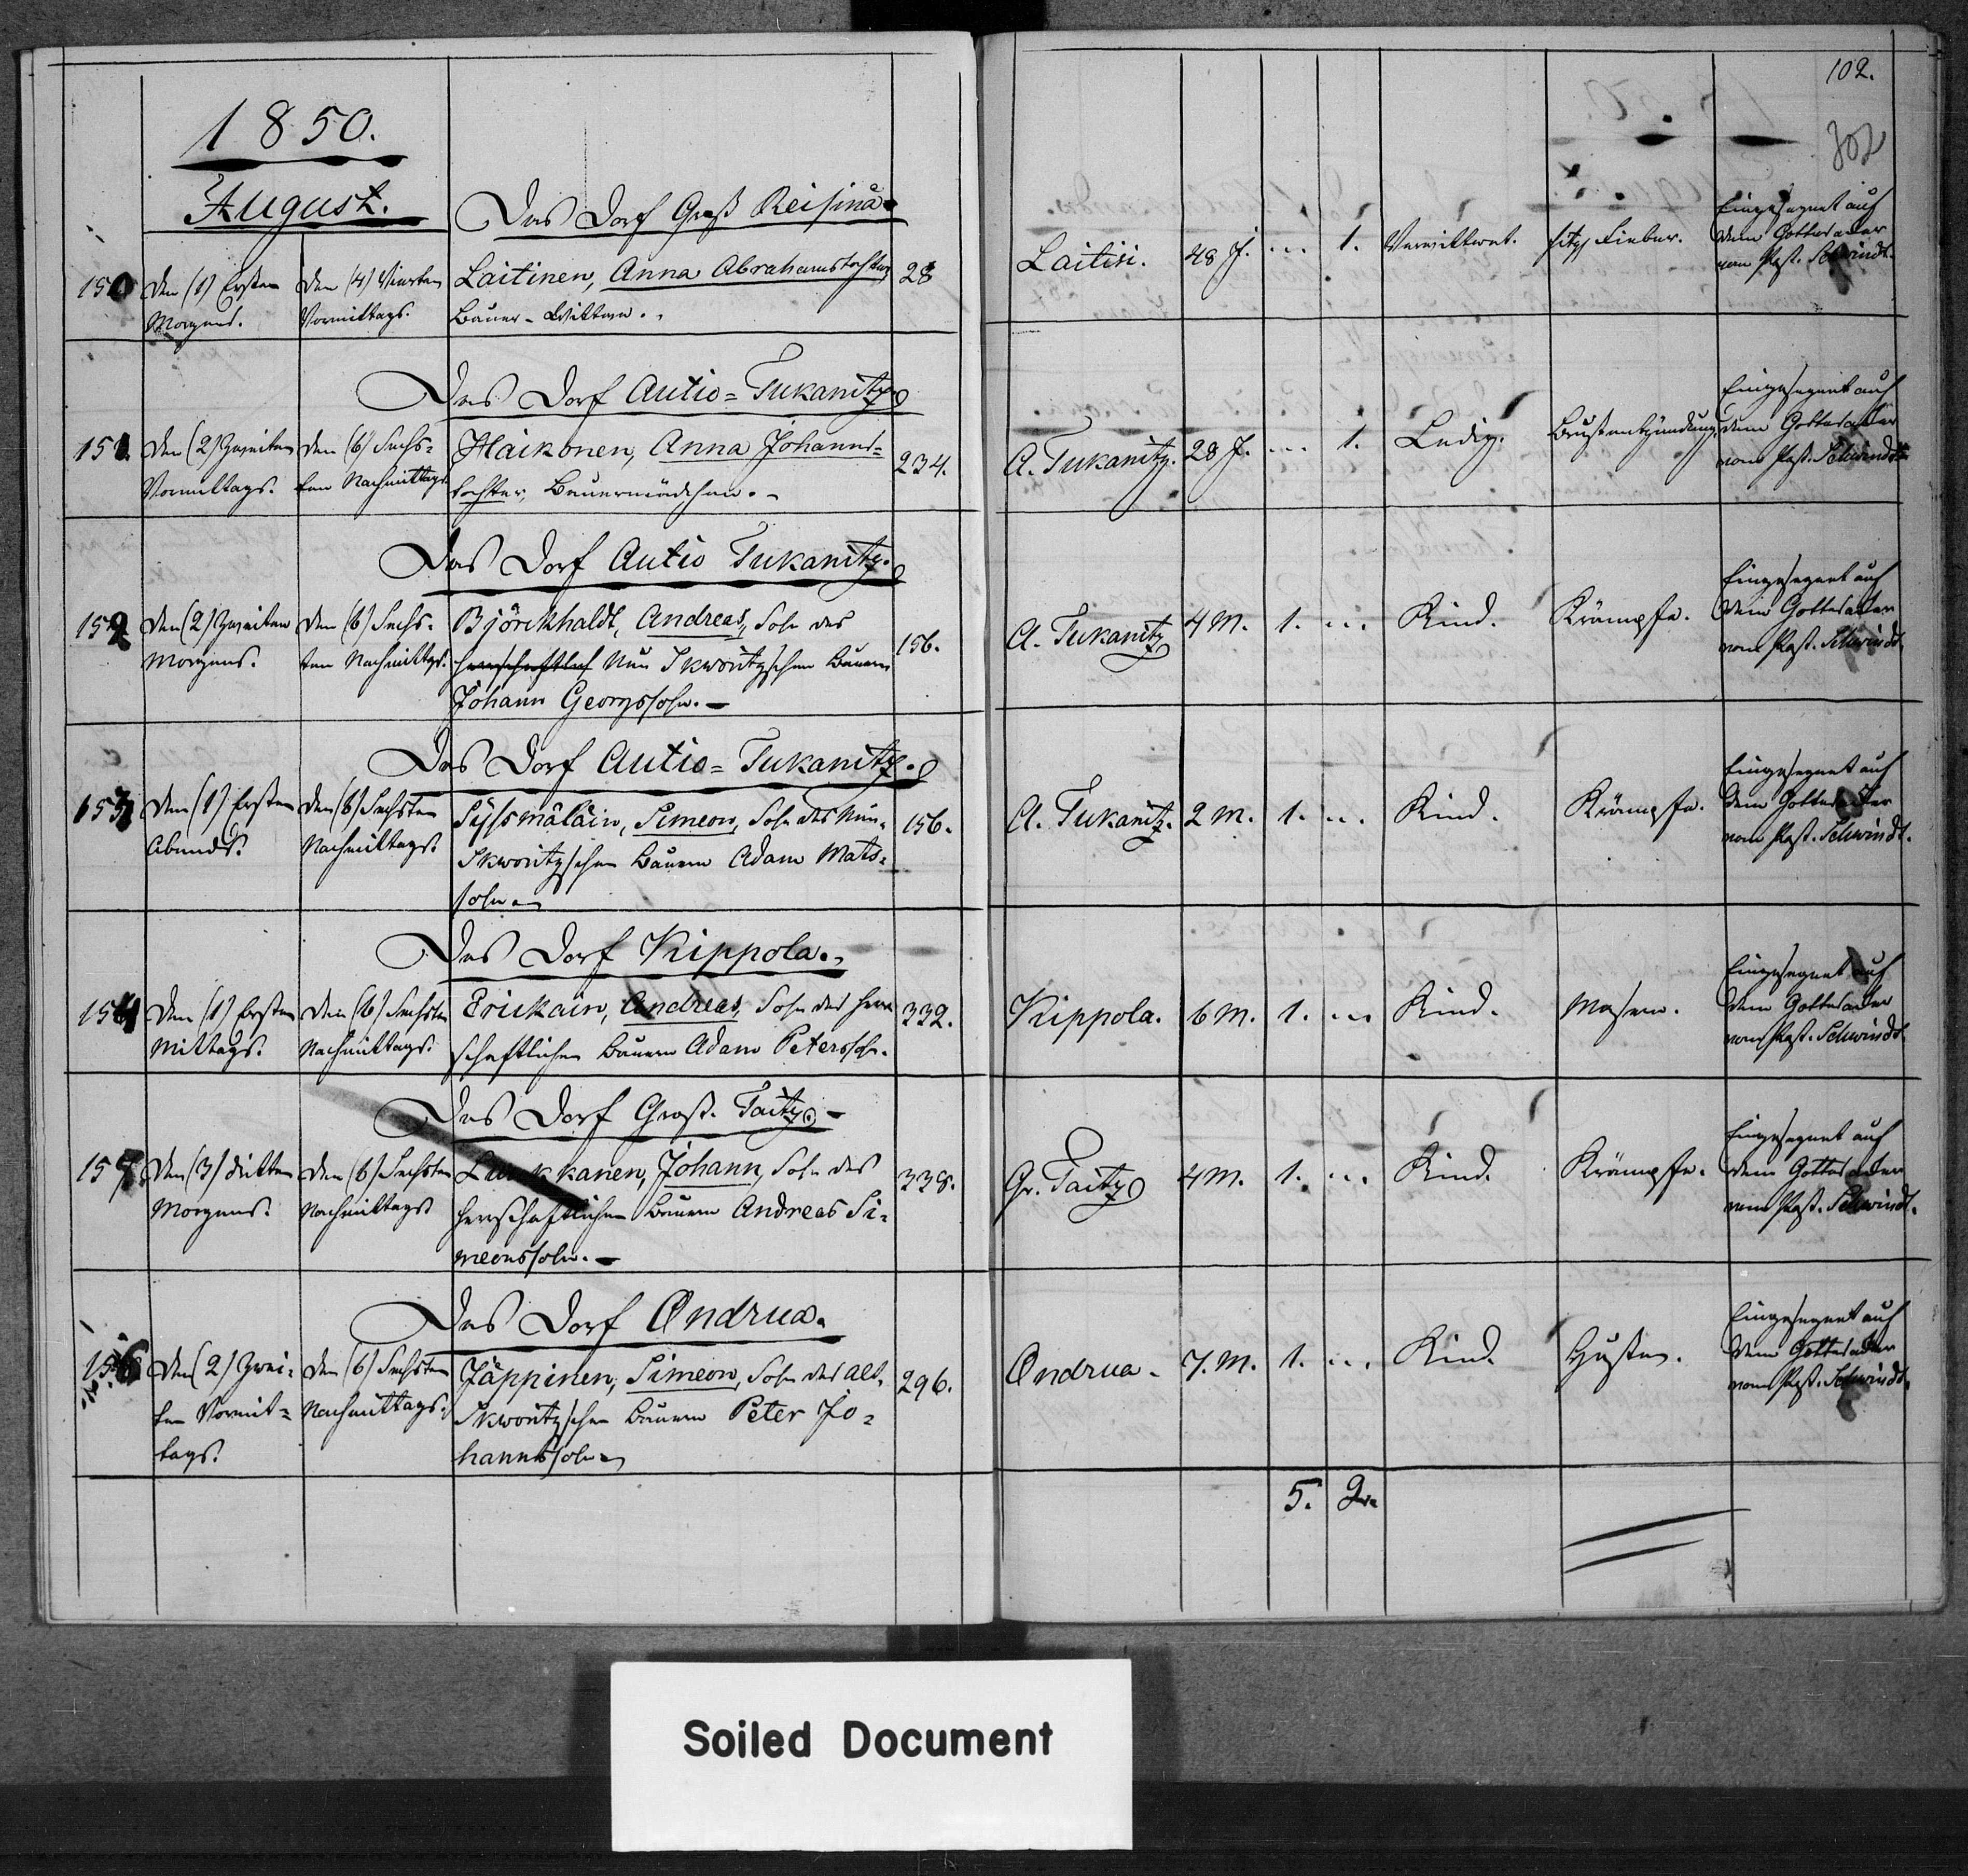 1850.
August.
Das Dorf Groß Reisina.
150 Den (1) Ersten Den (4) Vierten Laitinen, Anna Abrahamstochter, 28
Morgens. Vormittags. Bauer-Wittwe.
Das Dorf Autio=Tukanitz
151. Den (2) Zweiten Den (6) Sechs= Haikonen, Anna Johanns= 234.
Vormittags. ten Nachmittags. tochter, Bauermädchen.
Das Dorf Autio Tukanitz.
152 Den (2) Zweiten Den (6) Sechs= Björckhaldt, Andreas, Sohn des 156.
Morgens. ten Nachmittags. herrschaftlich Neu Skworitzschen Bauern
Johann Georgssohn.
Das Dorf Autio=Tukanitz.
153 Den (1) Ersten Den (6) Sechsten Syssmäläin, Simeon, Sohn des Neu= 156.
Abends. Nachmittags. Skworitzschen Bauern Adam Mats=
sohn
Das Dorf Kippola.
154 Den (1) Ersten Den (6) Sechsten Erickäin, Andreas, Sohn des herr 332.
Mittags. Nachmittags. schaftlichen Bauern Adam Peterssohn.
Das Dorf Groß. Taitz
155 Den (3) Dritten Den (6) Sechsten Johann, Sohn des 338.
Morgens. Nachmittags herrschaftlichen Bauern Andreas Si=
meonssohn.
Das Dorf Ondrua.
156 Den (2) Zwei= Den (6) Sechsten Jäppinen, Simeon, Sohn des Alt= 296.
ten Vormit= Nachmittags. Skworitzschen Bauern Peter Jo=
tags. hannssohn
102.
302
Laitisi. 48 J. ... 1. Verwittwet. hitz. Fieber. Eingesegnet auf
dem Gottesacker
vom Past. Schwindt.
A. Tukanitz. 28 J. ... 1. Ledig. Brustentzündung. Eingesegnet auf
dem Gottesacker
vom Past. Schwindt
A. Tukanitz 4 M. 1. ... Kind. Krämpfe. Eingesegnet auf
dem Gottesacker
vom Past. Schwindt.
A. Tukanitz. 2 M. 1. ... Kind. Krämpfe. Eingesegnet auf
dem Gottesacker
vom Past. Schwindt.
Kippola. 6 M. 1. ... Kind. Masern. Eingesegnet auf
dem Gottesacker
vom Past. Schwindt
Gr. Taitz 4 M. 1. ... Kind. Krämpfe. Eingesegnet auf
dem Gottesacker
vom Past. Schwindt.
Ondrua. 7. M. 1. ... Kind. Husten. Eingesegnet auf
dem Gottesacker
vom Past. Schwindt.
5. 2.
Soiled Document